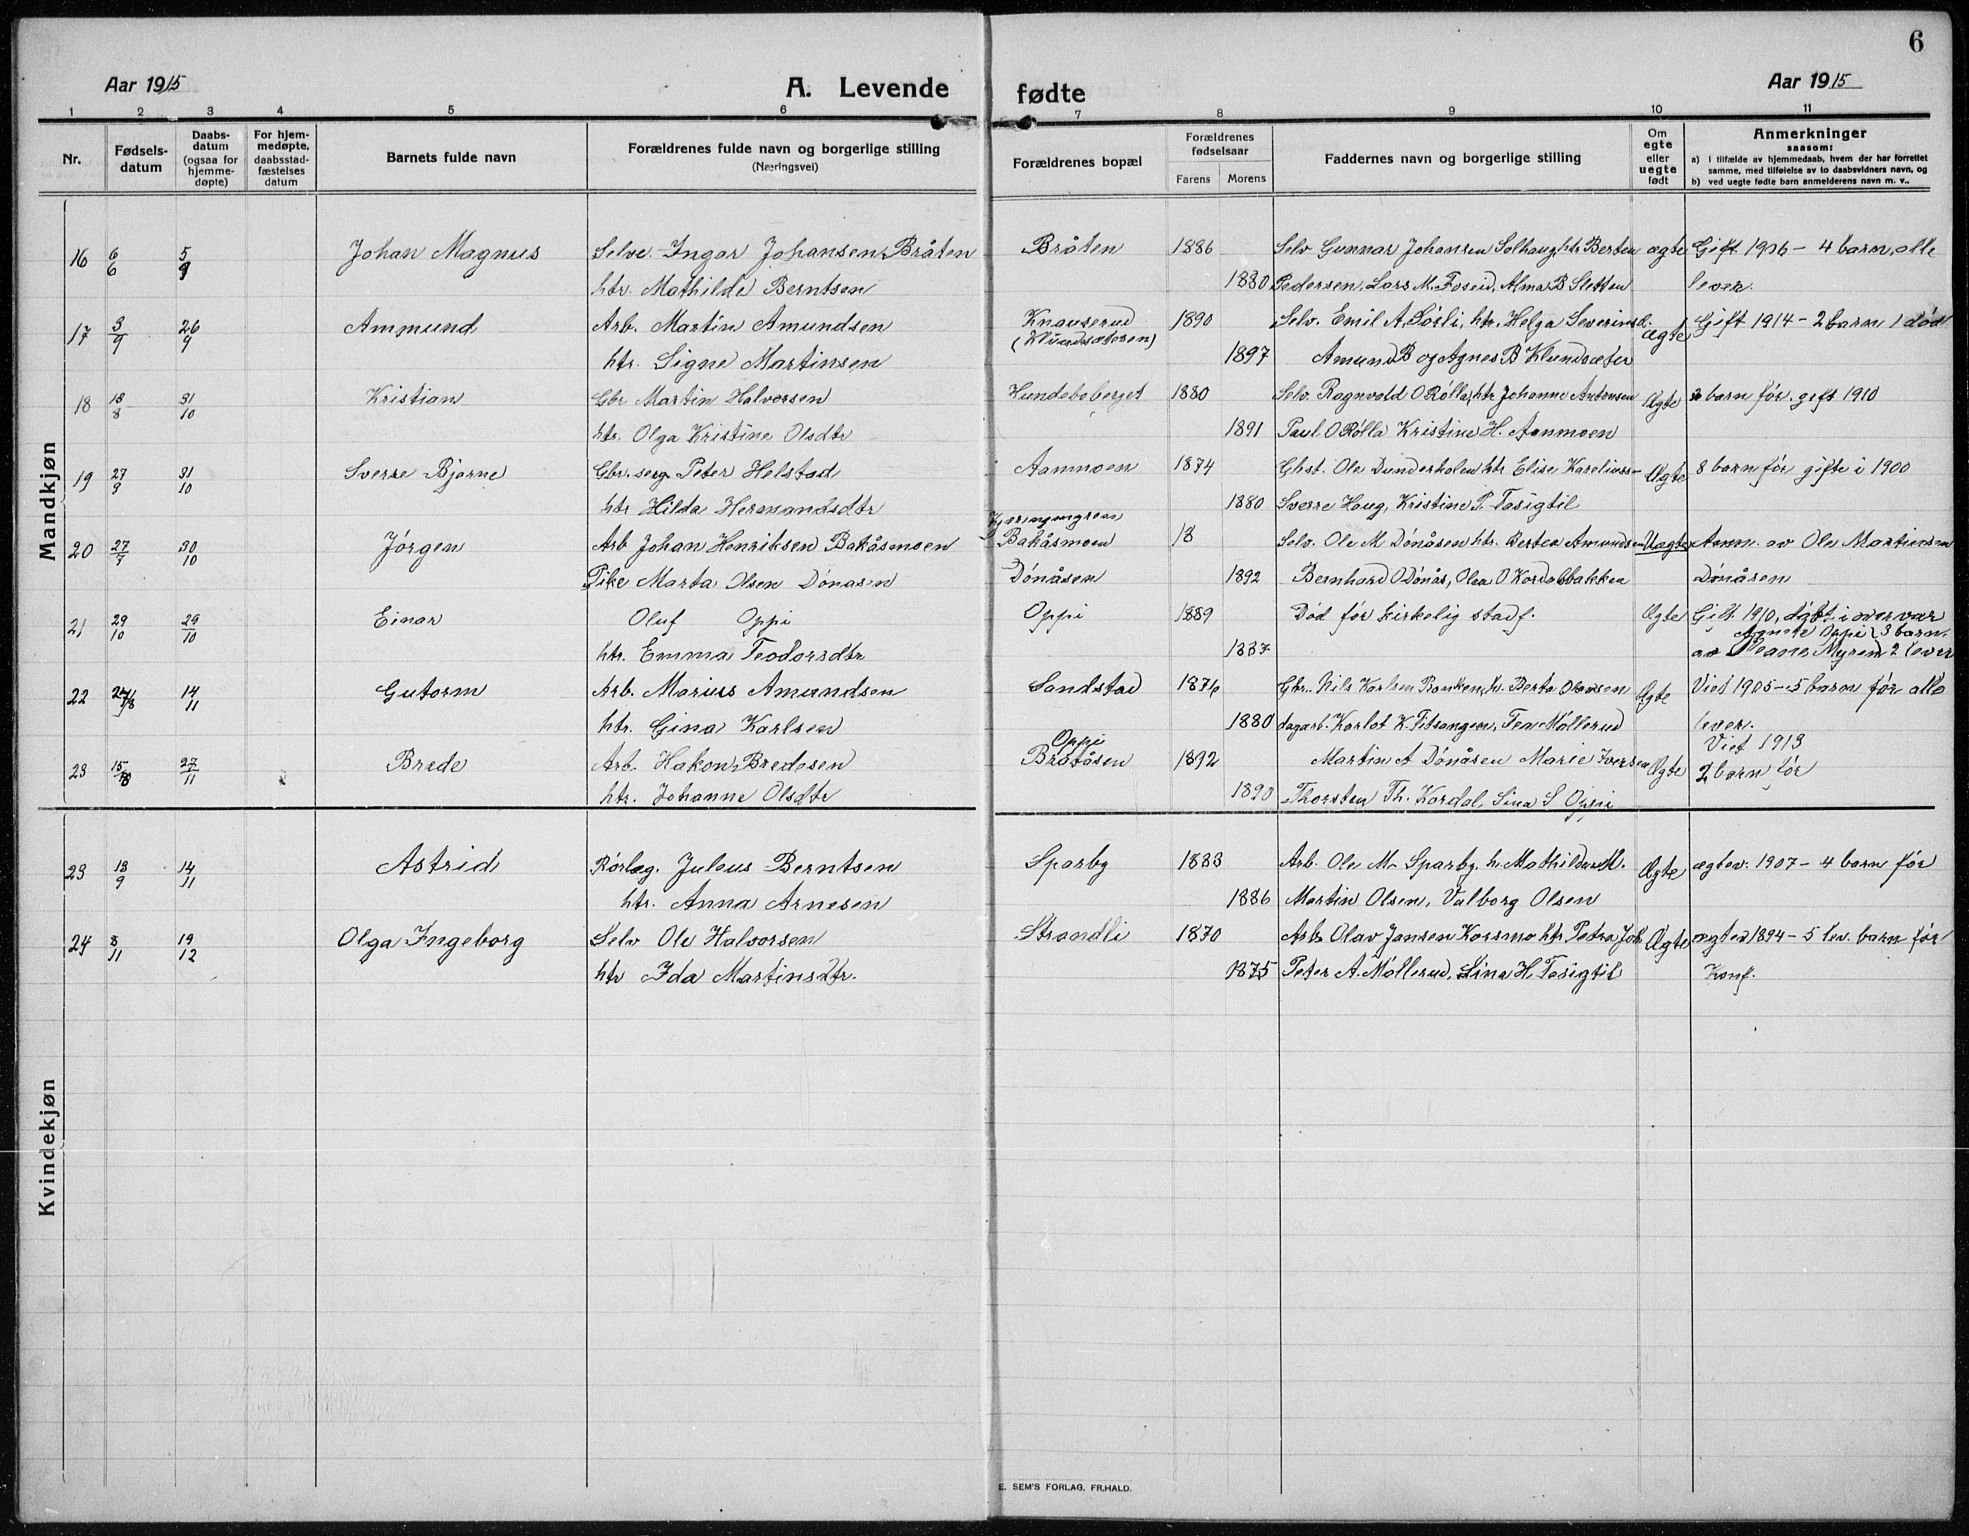 6
Aar 1915
A. Levende fødte
Aar 1915
1 2 3 4 5 6 7 8 9 10 11
Nr.
Fødsels-datum
Daabs-datum (ogsaa for hjemme-døpte)
For hjem-medøpte, daabsstad-fæstelses datum
Barnets fulde navn
Forældrenes fulde navn og borgerlige stilling
(Næringsvei)
Forældrenes bopæl
Forældrenes fødselsaar
Farens Morens
Faddernes navn og borgerlige stilling
Om egte eller uegte født
Anmerkninger
saasom:
a) i tilfælde av hjemmedaab, hvem der har forrettet samme, med tilføielse av to daabsvidners navn, og
b) ved uegte fødte barn anmelderens navn m. v..
Mandkjøn
16 6/6 5/9 Johan Magnus Selve. Ingar Johansen Bråten Bråten 1886 Selv Gunnar Johansen Solhaug, htr Berten ægte Gift 1906 - 4 barn, alle
htr. Mathilde Berntsen 1880 Pedersen, Lars M. Foseid, Alma B Sletten lever.
17 3/9 26/9 Ammund Arb. Martin Amundsen Knauserud 1890 Selv. Emil A. Sørli, htr. Helga Severinsd. ægte Gift 1914 - 2 barn 1 død
(Klundsæteren)
htr. Signe Martinsen 1897 Amund B og Agnes B Klundsæter
18 18/8 31/10 Kristian Gbr Martin Halvorsen Hundeboberget 1880 Selv. Ragnvald O Rølla, htr Johanne Antonsen Ægte barn før. gift 1910
htr. Olga Kristine Olsdtr 1891 Paul O Rølla Kristine H. Aanmoen
19 27/9 31/10 Sverre Bjarne Gbr. serg. Peter Helstad Aanmoen 1874 Gbst. Ole Dunderholen htr Elise Kareliuss- Ægte 8 barn før gifte i 1900
htr Hilda Hermandsdtr 1880 Sverre Haug, Kristine P. Tasigtil
20 27/7 30/10 Jørgen Arb Johan Henriksen Bakåsmoen Bakåsmoen 18 Selv. Ole M Dønåsen htr. Bertea Amundsen Uægte Anm. av Ole Martinsen
Pike Marta Olsen Dønåsen Dønåsen 1892 Bernhard O Dønås, Olea O Kordalbakken Dønåsen
21 29/10 29/10 Einar Oluf Oppi Oppi 1889 Død før kirkelig stadf. Ægte Gift 1910, døbt i overvær
Agnete Oppi 3 barn.
htr. Emma Teodorsdtr 1887 av Myren 2 lever
22 14/11 Gutorm Arb. Marius Amundsen Sandstad 1876 Gbr. Nils Karlsen Ranken, h. Berta Olavsen Ægte Viet 1905 - 5 barn før alle
htr. Gina Karlsen 1880 dagarb. Karlot K. Titsangen, Tea Møllerud lever.
Oppi Viet 1913
23 15/8 27/11 Brede Arb. Hakon Bredesen Bråtåsen 1892 Martin A Dønåsen Marie Iversen Ægte 2 barn før
htr. Johanne Olsdtr 1890 Thorsten Th. Kordal, Sina S Oppi
Kvindekjøn
23 13/9 14/11 Astrid Rørlæg. Juleus Berntsen Sparby 1883 Arb. Ole M. Sparby, h. Mathilde M. Ægte ægtev. 1907 - 4 barn før
htr. Anna Arnesen 1886 Martin Olsen, Valborg Olsen
24 8/11 19/12 Olga Ingeborg Selv Ole Halvorsen Strandli 1870 Arb. Olav Jansen Korsmo htr Petra Joh Ægte ægtev 1894 - 5 lev. barn før
htr Ida Martinsdtr. 1875 Peter A. Møllerud, Lina H. Tasigtil Konf.
E. SEM'S FORLAG. FR.HALD.